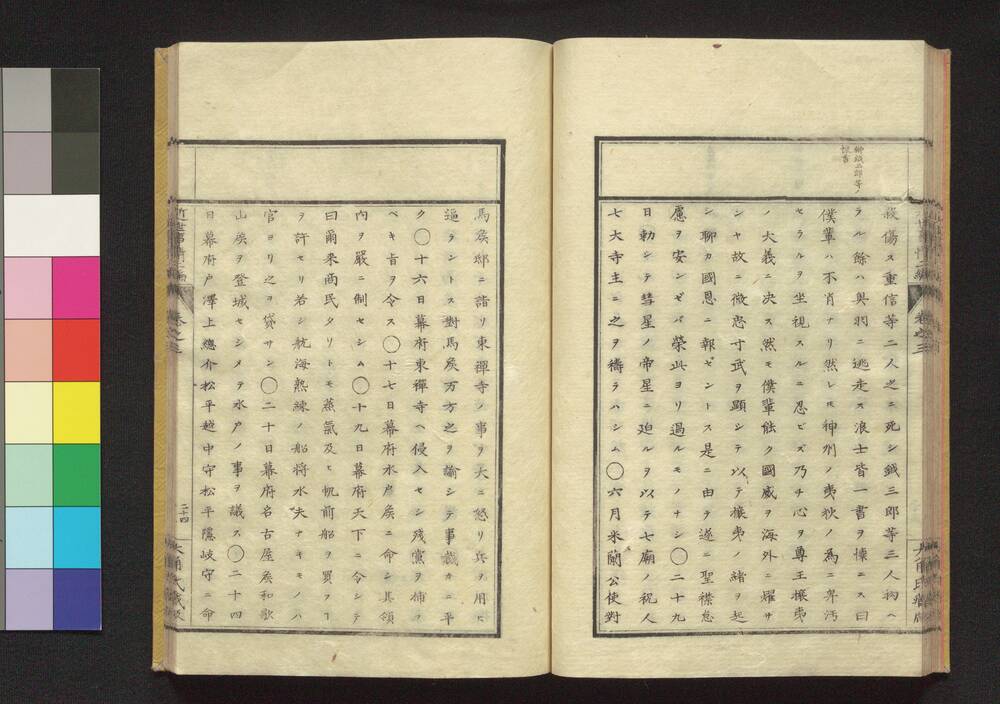 榊鉞三郎等ノ
懐書
殺傷ス重信等二人之ニ死シ鉞三郎等三人拘ヘ
ラル餘ハ與羽ニ逃走ス浪士皆一書ヲ懐ニス曰
僕輩ハ不肖ナリ然レ𪜈神州ノ夷狄ノ為ニ卑汚
セラルヲ坐視スルニ忍ビズ乃チ心ヲ尊王攘夷
ノ大義ニ决ス然モ僕輩能ク國威ヲ海外ニ耀サ
ンヤ故ニ微忠寸武ヲ顕シテ以テ攘夷ノ緒ヲ起
シ聊カ國恩ニ報ゼントス是ニ由テ遂ニ聖襟怠
慮ヲ安ンゼバ榮此ヨリ過ルモノナシ〇二十九
日勅シテ彗星ノ帝星ニ迫ルヲ以テ七廟ノ祝人
七大寺主ニ之ヲ禱ラハシム〇六月米蘭公使對
馬矦邸ニ詣リ東禪寺ノ事ヲ大ニ怒リ兵ヲ用ヒ
逼ラントス對馬矦万方之ヲ諭シテ事纔カニ平
ク〇十六日幕府東禪寺ヘ侵入セシ残黨ヲ捕フ
ベキ旨ヲ令ス〇十七日幕府水戸矦ニ命シ其領
内ヲ嚴ニ制セシム〇十九日幕府天下ニ令シテ
曰爾来商民タリトモ蒸氣及ヒ帆前船ヲ買フヿ
ヲ許セリ若シ航海熟練ノ船将水夫ナキモノハ
官ヨリ之ヲ貸サン〇二十日幕府名古屋矦和歌
山矦ヲ登城セシメテ水戸ノ事ヲ議ス〇二十四
日幕府戸澤上總介松平越中守松平隠岐守ニ命
卷之三
二十四